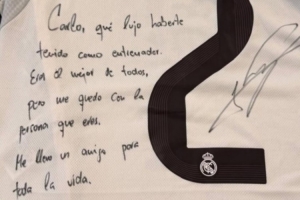 Carlo, qué lujo haberte
tenido como entrenador.
Eras el mejor de todos,
pero me quedo con la
persona que eres.
Me llevo un amigo para
toda la vida.
2